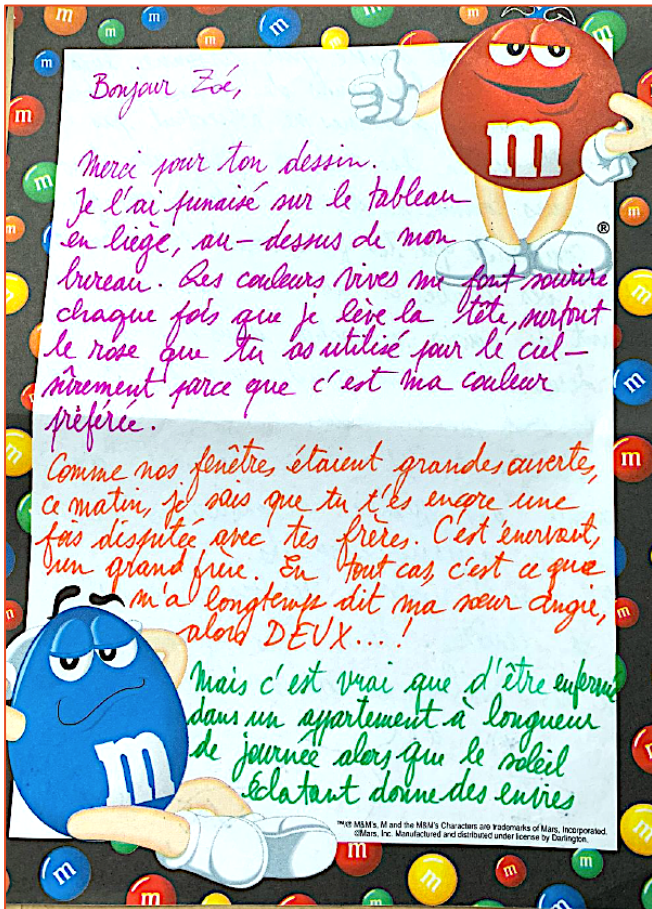 Bonjour Zoé,
Merci pour ton dessin.
Je l'ai punaisé sur le tableau
en liège, au-dessus de mon
bureau. Les couleurs vives me font sourire
chaque fois que je lève la tête, surtout
le rose que tu as utilisé pour le ciel -
sûrement parce que c'est ma couleur
préférée.
Comme nos fenêtres étaient grandes ouvertes,
ce matin, je sais que tu t'es encore une
fois disputée avec tes frères. C'est énervant,
un grand frère. En tout cas, c'est ce que
m'a longtemps dit ma sœur Angie,
alors DEUX...!
Mais c'est vrai que d'être enfermé
dans un appartement à longueur
de journée alors que le soleil
éclatant donne des envies
™/® M&M's, M and the M&M's Characters are trademarks of Mars, Incorporated.
©Mars, Inc. Manufactured and distributed under license by Darlington.
m
m
®